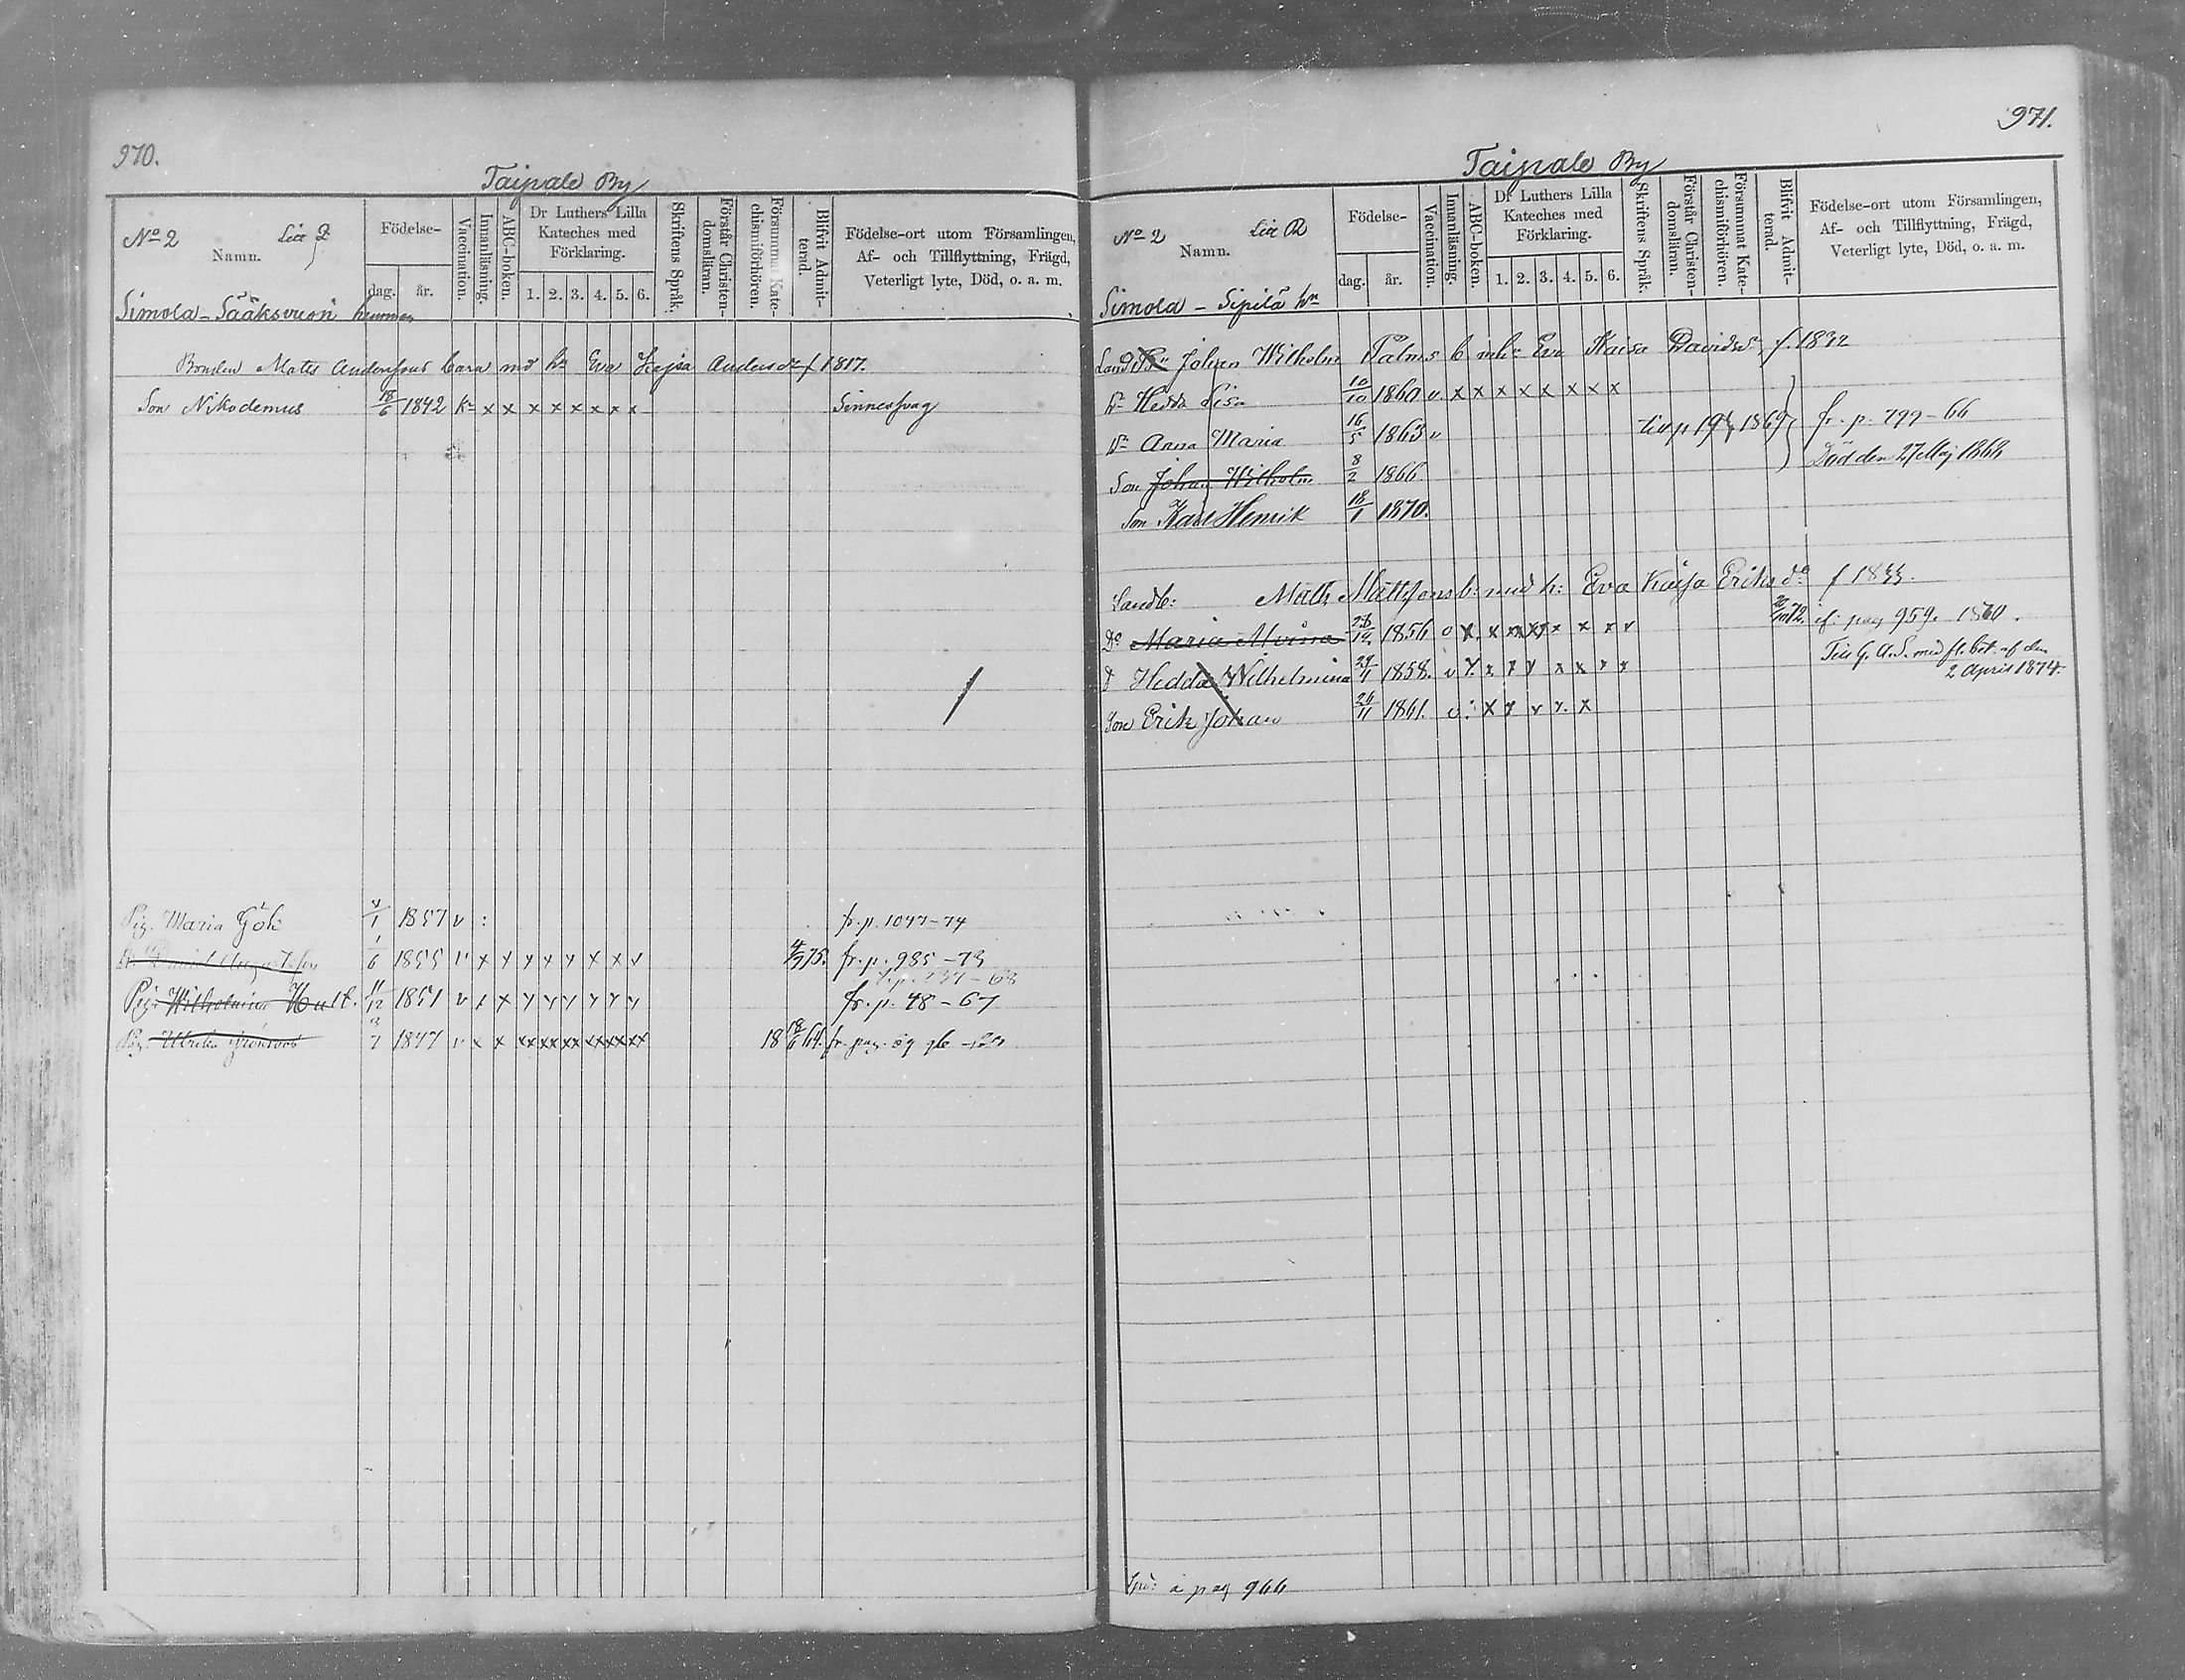 970.
Taipale By
No 2
Namn.
Födelse-
dag. år.
Vaccination.
Innanläsning.
ABC-boken.
Dr Luthers Lilla Kateches med Förklaring.
1. 2. 3. 4. 5. 6.
Skriftens Språk.
Förstår Christen-domsläran.
Försummat Kate-chismiförhören.
Blifvit Admit-terad.
Födelse-ort utom Församlingen,
Af- och Tillflyttning, Frägd,
Veterligt lyte, Död, o. a. m.
Simola - Sääksvuori hemman
Bonden Matts Anderssons barn md h. Eva Kajsa Andersdr f 1817.
Son Nikodemus 18/6 1842 K x x x x x x x x Sinnessvag
Pig. Maria Gök 1857 v : fr. p. 1047-74
1/6 1855 v x y y y y x x v 75. fr. p. 985-73
Pig. Wilhelmina Hult. 11/12 1851 v x x y y y y y y fr. p. 48-67
Pig. Ulrika 3/7 1847 v x x xx xx xx xx xx xx 18 18/6 64. fr. pag.
971.
Taipale By
No 2
Namn.
Födelse-
dag. år.
Vaccination.
Innanläsning.
ABC-boken.
Dr Luthers Lilla Kateches med Förklaring.
1. 2. 3. 4. 5. 6.
Skriftens Språk.
Förstår Christen-domsläran.
Försummat Kate-chismiförhören.
Blifvit Admit-terad.
Födelse-ort utom Församlingen,
Af- och Tillflyttning, Frägd,
Veterligt lyte, Död, o. a. m.
Simola - Sipilä hn
Johan Wilhelm Palms b m hr Eva Kaisa Davidsdr f. 1832
Dr Hedda Lisa 10/10 1860 v. x x x x x x x x
Dr Anna Maria 16/5 1863 v 1869 fr. p. 799-66
Son Johan Wilhelm 8/2 1866 Död den 27 Maj 1868
Son Karl Henrik 18/1 1870.
Landb: Matts Mattssons b: med h: Eva Kaisa Eriksdr f 1833.
Dr Maria Alvina 1856 v x. x xx xx x x x v 72. if. pag 959. 1860.
D Hedda Wilhelmina 1858. v y. x y y x x x x Till G. A. S. med fl. bet. af den
2 April 1874.
Son Erik Johan 26/11 1861. v : x y v y. x
à pag 966